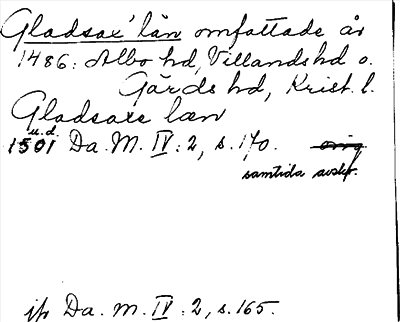 Gladsax' län omfattade år
1486: Albo hd, Villands hd o.
Gärds hd, Krist. l.
Gladsaxe læn
u.d.
1501 Da. M. IV: 2, s. 170. orig.
samtida avskr.
jfr Da. M. IV: 2, s. 165.